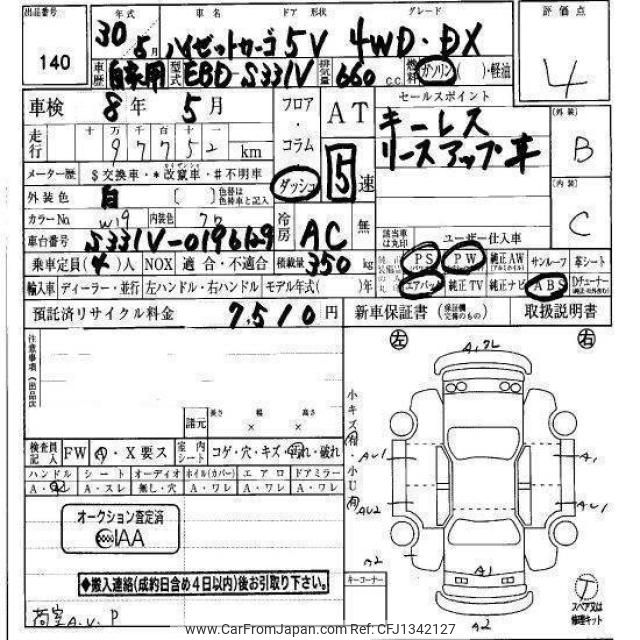 出品番号 年式 車名 ドア 形状 グレード 評価点
140 30 5月 ハイゼットカーゴ 5V 4WD・DX 4
車歴 自家用 型式 EBD-S331V 排気量 660 cc 燃料 ガソリン( )・軽油
車検 8年 5月 フロア・コラム ダッシュ AT 5 速 セールスポイント
十 万 千 百 十 一
走行 97752 km
キーレス
リースアップ車
(外装) B
メーター歴 $交換車・*改竄車・#不明車
(内装) C
外装色 白 [ ] 色替は色替車と記入
カラーNo W19 内装色
冷房 AC 無 該当装備は丸印 ユーザー仕入車
車台番号
乗車定員(4)人 NOX 適合・不適合 積載量 350 kg
PS PW 純正AW サンルーフ 革シート
輸入車 ディーラー・並行 左ハンドル・右ハンドル モデル年式( )年
エアバッグ 純正TV 純正ナビ ABS Dチューナー
預託済リサイクル料金 7,510円 新車保証書 (保証継交換のもの) 取扱説明書
注意事項(出品店
諸元 長さ × 幅 × 高さ
左 右
検査員記入 FW A・X要ス 室内シート コゲ・穴・キズ・汚れ・破れ
ハンドル シート オーディオ ホイル(カバー) エアロ ドアミラー
A・スレ A・スレ 無し・穴 A・ワレ A・ワレ A・ワレ
小キズ有
小U有
AU1 A1
AU2 AU1
A2 A1 A2
オークション査定済
IAA
◆搬入連絡(成約日含め4日以内)後お引取り下さい。
キーコーナー
スペア又は修理キット
荷室A.U.P
www.CarFromJapan.com Ref: CFJ1342127